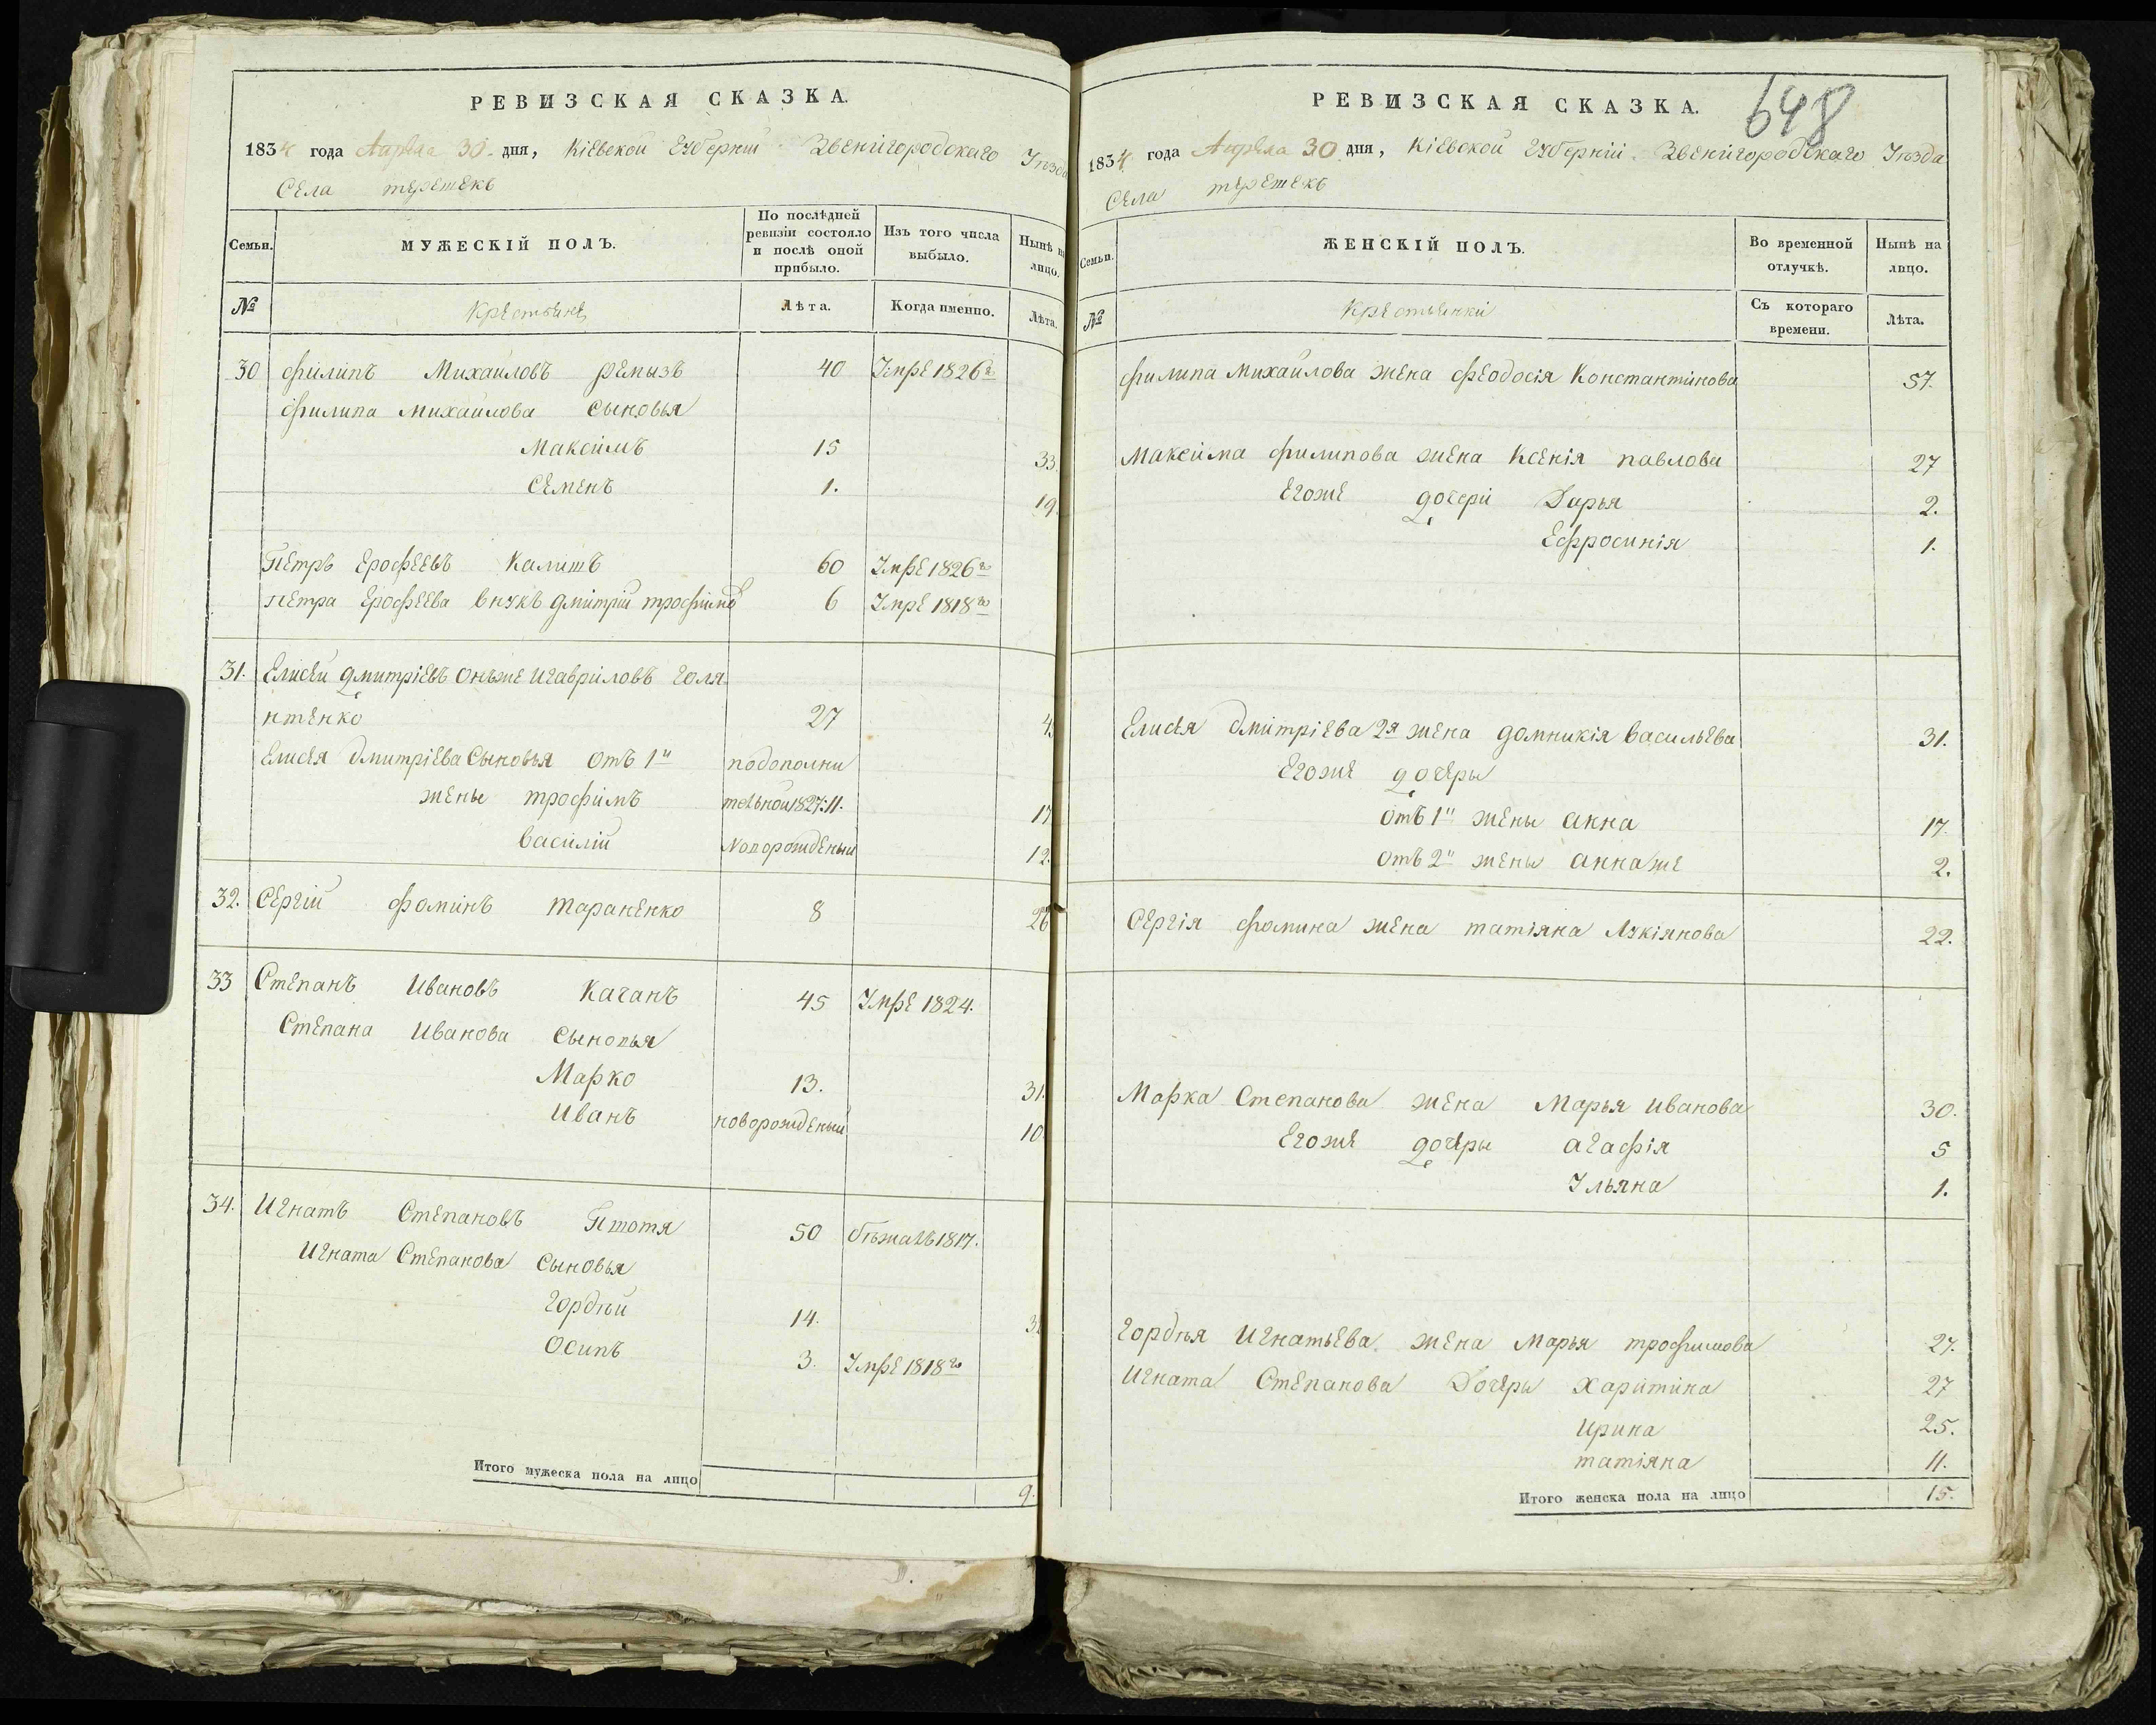 РЕВИЗСКАЯ СКАЗКА.
1834 года Апреля 30 дня, Кіевской Губерніи Звенигородскаго Уѣзда
Села терешекъ
Семьи.
МУЖЕСКІЙ ПОЛЪ.
По послѣдней ревизіи состояло и послѣ оной прибыло.
Изъ того числа выбыло.
Нынѣ на лицо.
№
Крестьяне
Лѣта.
Когда именно.
Лѣта.
30 Филипъ Михайловъ ремызъ 40 Умре 1826го
Филипа Михайлова сыновья
Максимъ 15 33.
Семенъ 1. 19.
Петръ Ерофеевъ Калишъ 60 Умре 1826го
Петра Ерофеева внукъ Дмитрій трофимовъ 6 Умре 1818го
31. Елисей Дмитріевъ онъже Игавриловъ Голя
нтенко 27
Елисея Дмитріева Сыновья отъ 1й подополни
жены трофимъ тельной 1827: 11. 17
Василій Новорожденый 12.
32. Сергій фоминъ тараненко 8 26
33 Степанъ Ивановъ Качанъ 45 Умре 1824.
Степана Иванова Сыновья
Марко 13. 31.
Иванъ новорожденый 10.
34. Игнатъ Степановъ Пшотя 50 бѣжалъ 1817.
Игната Степанова Сыновья
Гордѣй 14.
Осипъ 3. Умре 1818го
Итого мужеска пола на лицо 9.
648
РЕВИЗСКАЯ СКАЗКА.
1834 года Апреля 30 дня, Кіевской Губерніи Звенигородскаго Уѣзда
Села терешекъ
Семьи.
ЖЕНСКІЙ ПОЛЪ.
Во временной отлучкѣ.
Нынѣ на лицо.
№
Крестьянки
Съ котораго времени.
Лѣта.
филипа Михайлова жена феодосія Константинова 57.
Максима филипова жена Ксенія павлова 27
Егоже дочери Дарья 2.
Ефросинія 1.
Елисея Дмитріева 2я жена домникія Васильева 31.
Егоже дочеры
отъ 1й жены анна 17.
отъ 2й жены аннаже 2.
Сергія фомина жена татіяна Лукіянова 22.
Марка Степанова жена Марья Иванова 30.
Егоже дочеры агафія 5
Ульяна 1.
Гордѣя Игнатьева жена Марья трофимова 27.
Игната Степанова Дочеры Харитина 27
Ирина 25.
татіяна 11.
Итого женска пола на лицо 15.